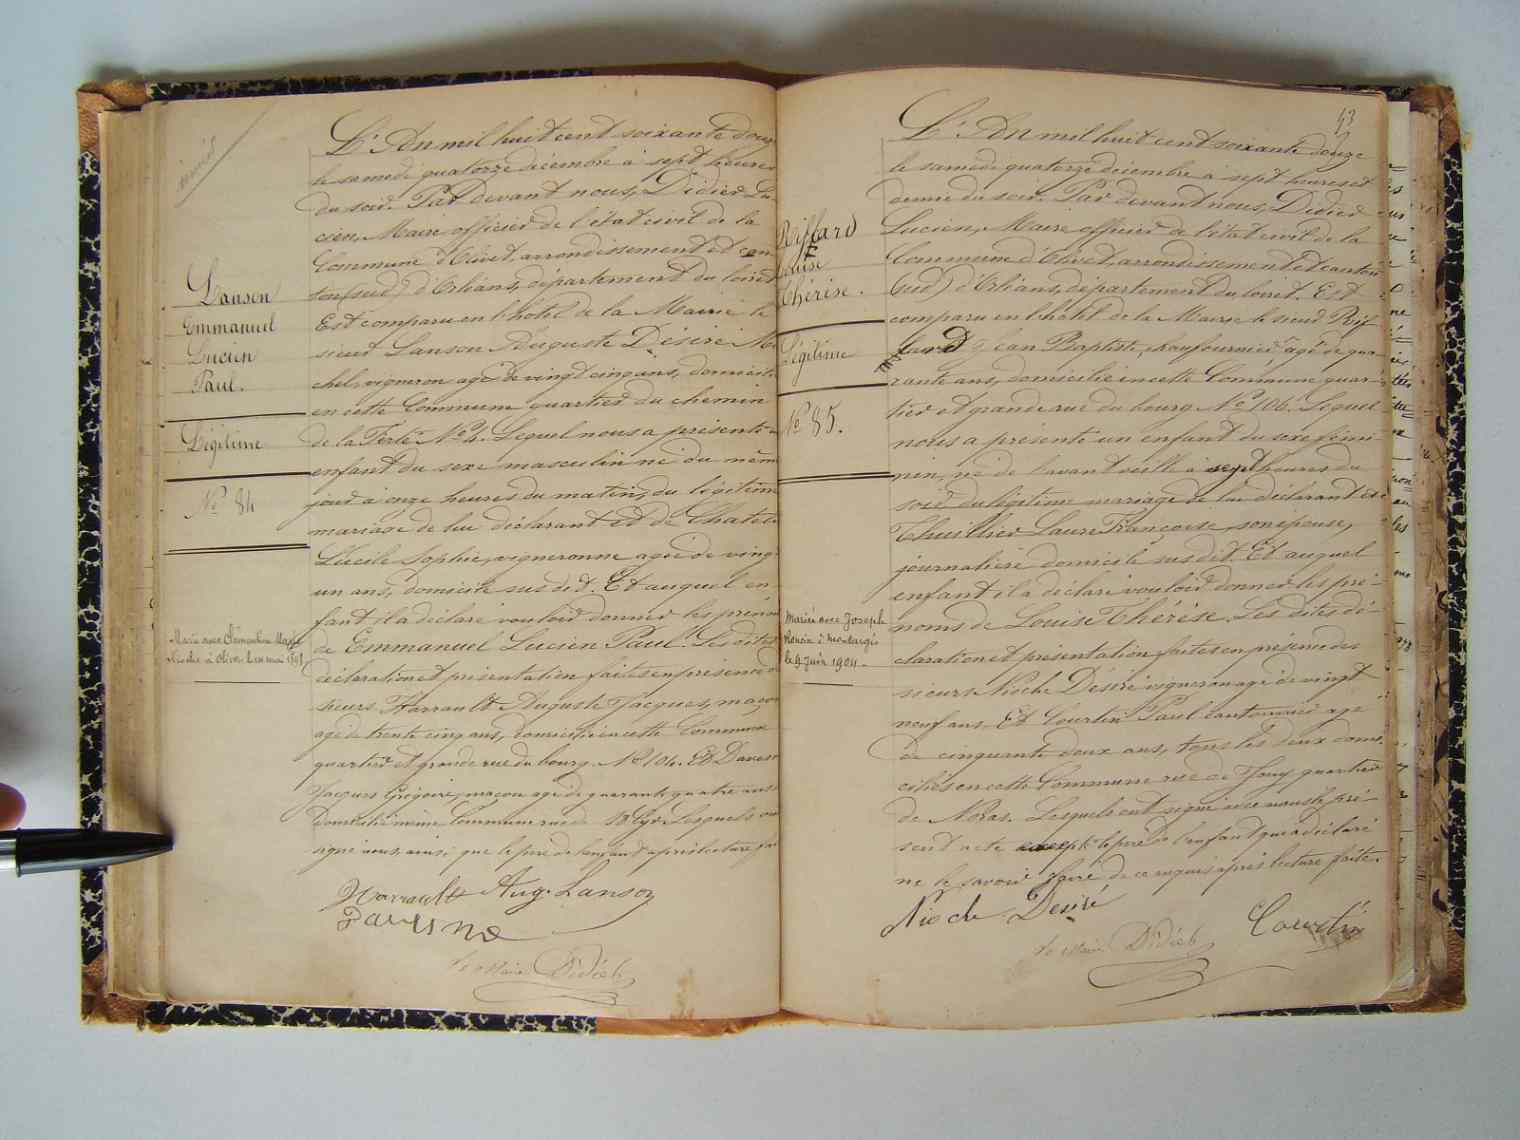 Lanson
Emmanuel
Lucien
Paul.
Légitime
No 84
Marié avec Clémentine
à Olivet le mai 1891
L'An mil huit cent soixante douze
le samedi quatorze décembre à sept heures
du soir. Par devant nous, Didier Lu-
cien, Maire officier de l'état civil de la
Commune d'Olivet, arrondissement et can-
ton (sud) d'Orléans, département du Loiret
Est comparu en l'hôtel de la Mairie le
sieur Lanson Auguste Désiré Mi-
chel, vigneron agé de vingt cinq ans, domicilié
en cette Commune quartier du chemin
de la Ferté No Lequel nous a présenté un
enfant du sexe masculin né du même
jour à onze heures du matin, du légitime
mariage de lui déclarant et de
Lucile Sophie, vigneronne agée de vingt
un ans, domicile susdit. Et auquel en-
fant il a déclaré vouloir donner les prénoms
de Emmanuel Lucien Paul. Les dites
déclaration et présentation faites en présence des
sieurs Harrault Auguste Jacques, maçon
agé de trente cinq ans, domicilié en cette Commune
quartier et grande rue du bourg. No 104. Et
Jacques Grégoire, maçon agé de quarante quatre ans
Domicilié même Commune rue de Lesquels ont
signé avec nous ainsi que le père de l'enfant après lecture faite
Harrault Aug. Lanson
Le Maire Didier L
43
Riffard
Louise
Thérèse.
Légitime
No 85.
Mariée avec Joseph
à Montargis
le 9 Juin 1904
L'An mil huit cent soixante douze
le samedi quatorze décembre à sept heures et
demie du soir. Par devant nous, Didier
Lucien, Maire officier de l'état civil de la
Commune d'Olivet, arrondissement et canton
(sud) d'Orléans, département du Loiret. Est
comparu en l'hôtel de la Mairie le sieur Rif
fard Jean Baptiste, chaufournier, agé de qua-
rante ans, domicilié en cette Commune quar-
tier et grande rue du bourg No 106. Lequel
nous a présenté un enfant du sexe fémi-
nin, né de l'avant veille à sept heures du
soir du légitime mariage de lui déclarant et de
Thuillier Laure Françoise, son épouse,
journalière domicile susdit. Et auquel
enfant il a déclaré vouloir donner les pré-
noms de Louise Thérèse. Les dites dé-
claration et présentation faites en présence des
sieurs Nioche Désiré vigneron agé de vingt
neuf ans. Et Courtin Paul cantonnier agé
de cinquante deux ans, tous les deux domi-
ciliés en cette Commune rue de quartier
de Noras. Lesquels ont signé avec nous le pré-
sent acte excepté le père de l'enfant qui a déclaré
ne le savoir faire de ce requis après lecture faite.
Nioche Désiré Courtin
Le Maire Didier L